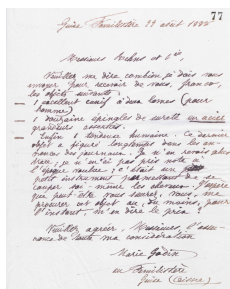 77
Guise Familistère 29 août 1888
Messieurs Mahus et Cie
Veuillez me dire combien je dois vous
envoyer pour recevoir de vous, franco,
les objets suivants :
1 excellent canif à deux lames (pour
homme)
1 douzaine épingles de sureté en acier
grandeurs assorties.
Enfin 1 tondeuse humaine. Ce dernier
objet a figuré longtemps dans les an-
nonces des journaux. Je n'en avais alors
je n'en ai pas pris note à
l'époque voulue ; c'était un
petit instrument permettant de se
couper soi-même les cheveux. J'espère
que peut-être vous saurez, vous, me
procurer cet objet ou, du moins, pour
l'instant m'en dire le prix ?
Veuillez agréer, Messieurs, l'assu-
rance de toute ma considération
Marie Godin
au Familistère
Guise (Aisne)